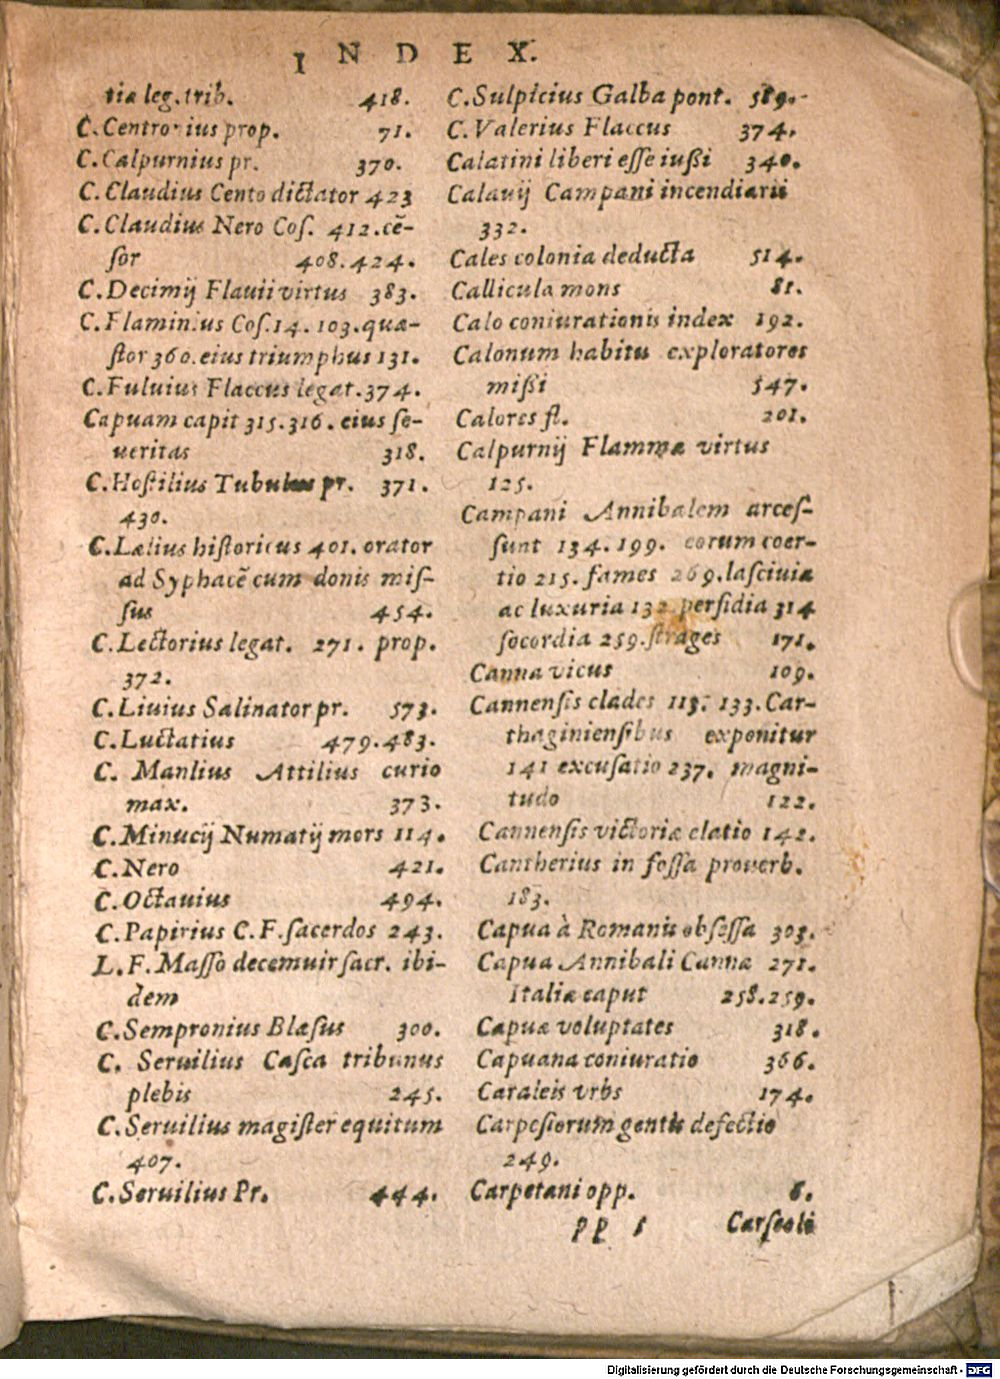 INDEX.
tiæ leg. trib. 418.
C. Centronius prop. 71.
C. Calpurnius pr. 370.
C. Claudius Cento dictator 423
C. Claudius Nero Coſ. 412. cẽ-
ſor 408. 424.
C. Decimij Flauii virtus 383.
C. Flaminius Coſ. 14. 103. quæ-
ſtor 360. eius triumphus 131.
C. Fuluius Flaccus legat. 374.
Capuam capit 315. 316. eius ſe-
ueritas 318.
C. Hoſtilius Tubulus pr. 371.
430.
C. Lælius hiſtoricus 401. orator
ad Syphacẽ cum donis miſ-
ſus 454.
C. Lectorius legat. 271. prop.
372.
C. Liuius Salinator pr. 573.
C. Luctatius 479. 483.
C. Manlius Attilius curio
max. 373.
C. Minucij Numatij mors 114.
C. Nero 421.
C. Octauius 494.
C. Papirius C. F. ſacerdos 243.
L. F. Maſſo decemuir ſacr. ibi-
dem
C. Sempronius Blæſus 300.
C. Seruilius Caſca tribunus
plebis 245.
C. Seruilius magiſter equitum
407.
C. Seruilius Pr. 444.
C. Sulpicius Galba pont. 589.
C. Valerius Flaccus 374.
Calatini liberi eſſe iußi 340.
Calauij Campani incendiarii
332.
Cales colonia deducta 514.
Callicula mons 81.
Calo coniurationis index 192.
Calonum habitu exploratores
mißi 547.
Calores fl. 201.
Calpurnij Flammæ virtus
125.
Campani Annibalem arceſ-
ſunt 134. 199. eorum coer-
tio 215. fames 269. laſciuia
ac luxuria 132. perfidia 314
ſocordia 259. ſtrages 171.
Canna vicus 109.
Cannenſis clades 113. 133. Car-
thaginienſibus exponitur
141 excuſatio 237. magni-
tudo 122.
Cannenſis victoriæ elatio 142.
Cantherius in foſſa prouerb.
183.
Capua à Romanis obſeſſa 303.
Capua Annibali Canna 271.
Italiæ caput 258. 259.
Capuæ voluptates 318.
Capuana coniuratio 366.
Caraleis vrbs 174.
Carpeſiorum gentis defectio
249.
Carpetani opp. 6.
pp 5 Carſeoli
Digitalisierung gefördert durch die Deutsche Forschungsgemeinschaft - DFG